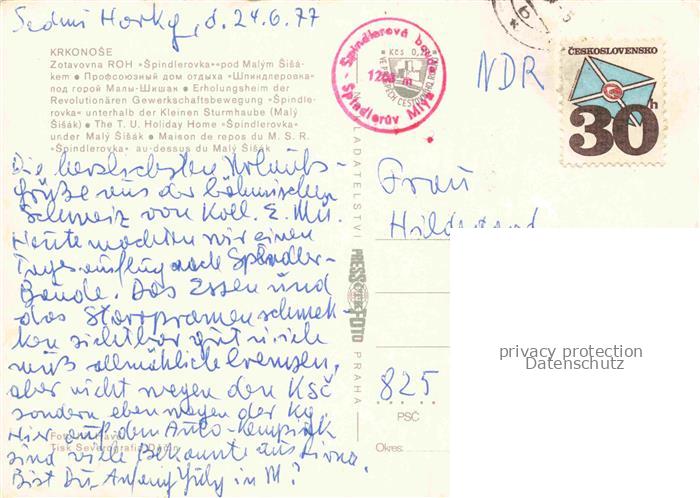 Sedmi Horky, d. 24.6.77
KRKONOŠE
Zotavovna ROH »Špindlerovka« pod Malým Šišá-
kem ● Профсоюзный дом отдыха »Шпиндлеровка«
под горой Малы-Шишак ● Erholungsheim der
Revolutionären Gewerkschaftsbewegung »Špindle-
rovka« unterhalb der Kleinen Sturmhaube (Malý
Šišák) ● The T. U. Holiday Home »Špindlerovka«
under Malý Šišák ● Maison de repos du M. S. R.
»Špindlerovka« au-dessus du Malý Šišák
Die herzlichsten Urlaubs-
grüße aus der böhmischen
Schweiz von Koll. E. Mü.
Heute machten wir einen
Tagesausflug nach Spindler-
Baude. Das Essen und
das Staropramen schmek-
ken sichtbar gut u. ich
muß allmählich bremsen,
aber nicht wegen den KSČ
sondern eben wegen der Kg.
Hier auf dem Auto-Kemping
sind viele Bekannte aus
Bist Du Anfang July in M?
Tisk Severografia Děčín
Špindlerova bouda
Kčs 0,
12 m
Špindlerův Mlýn
NAKLADATELSTVÍ
PRESSFOTO
PRAHA
NDR
ČESKOSLOVENSKO
30h
Frau
Hildegard
825
PSČ
Okres:
privacy protection
Datenschutz